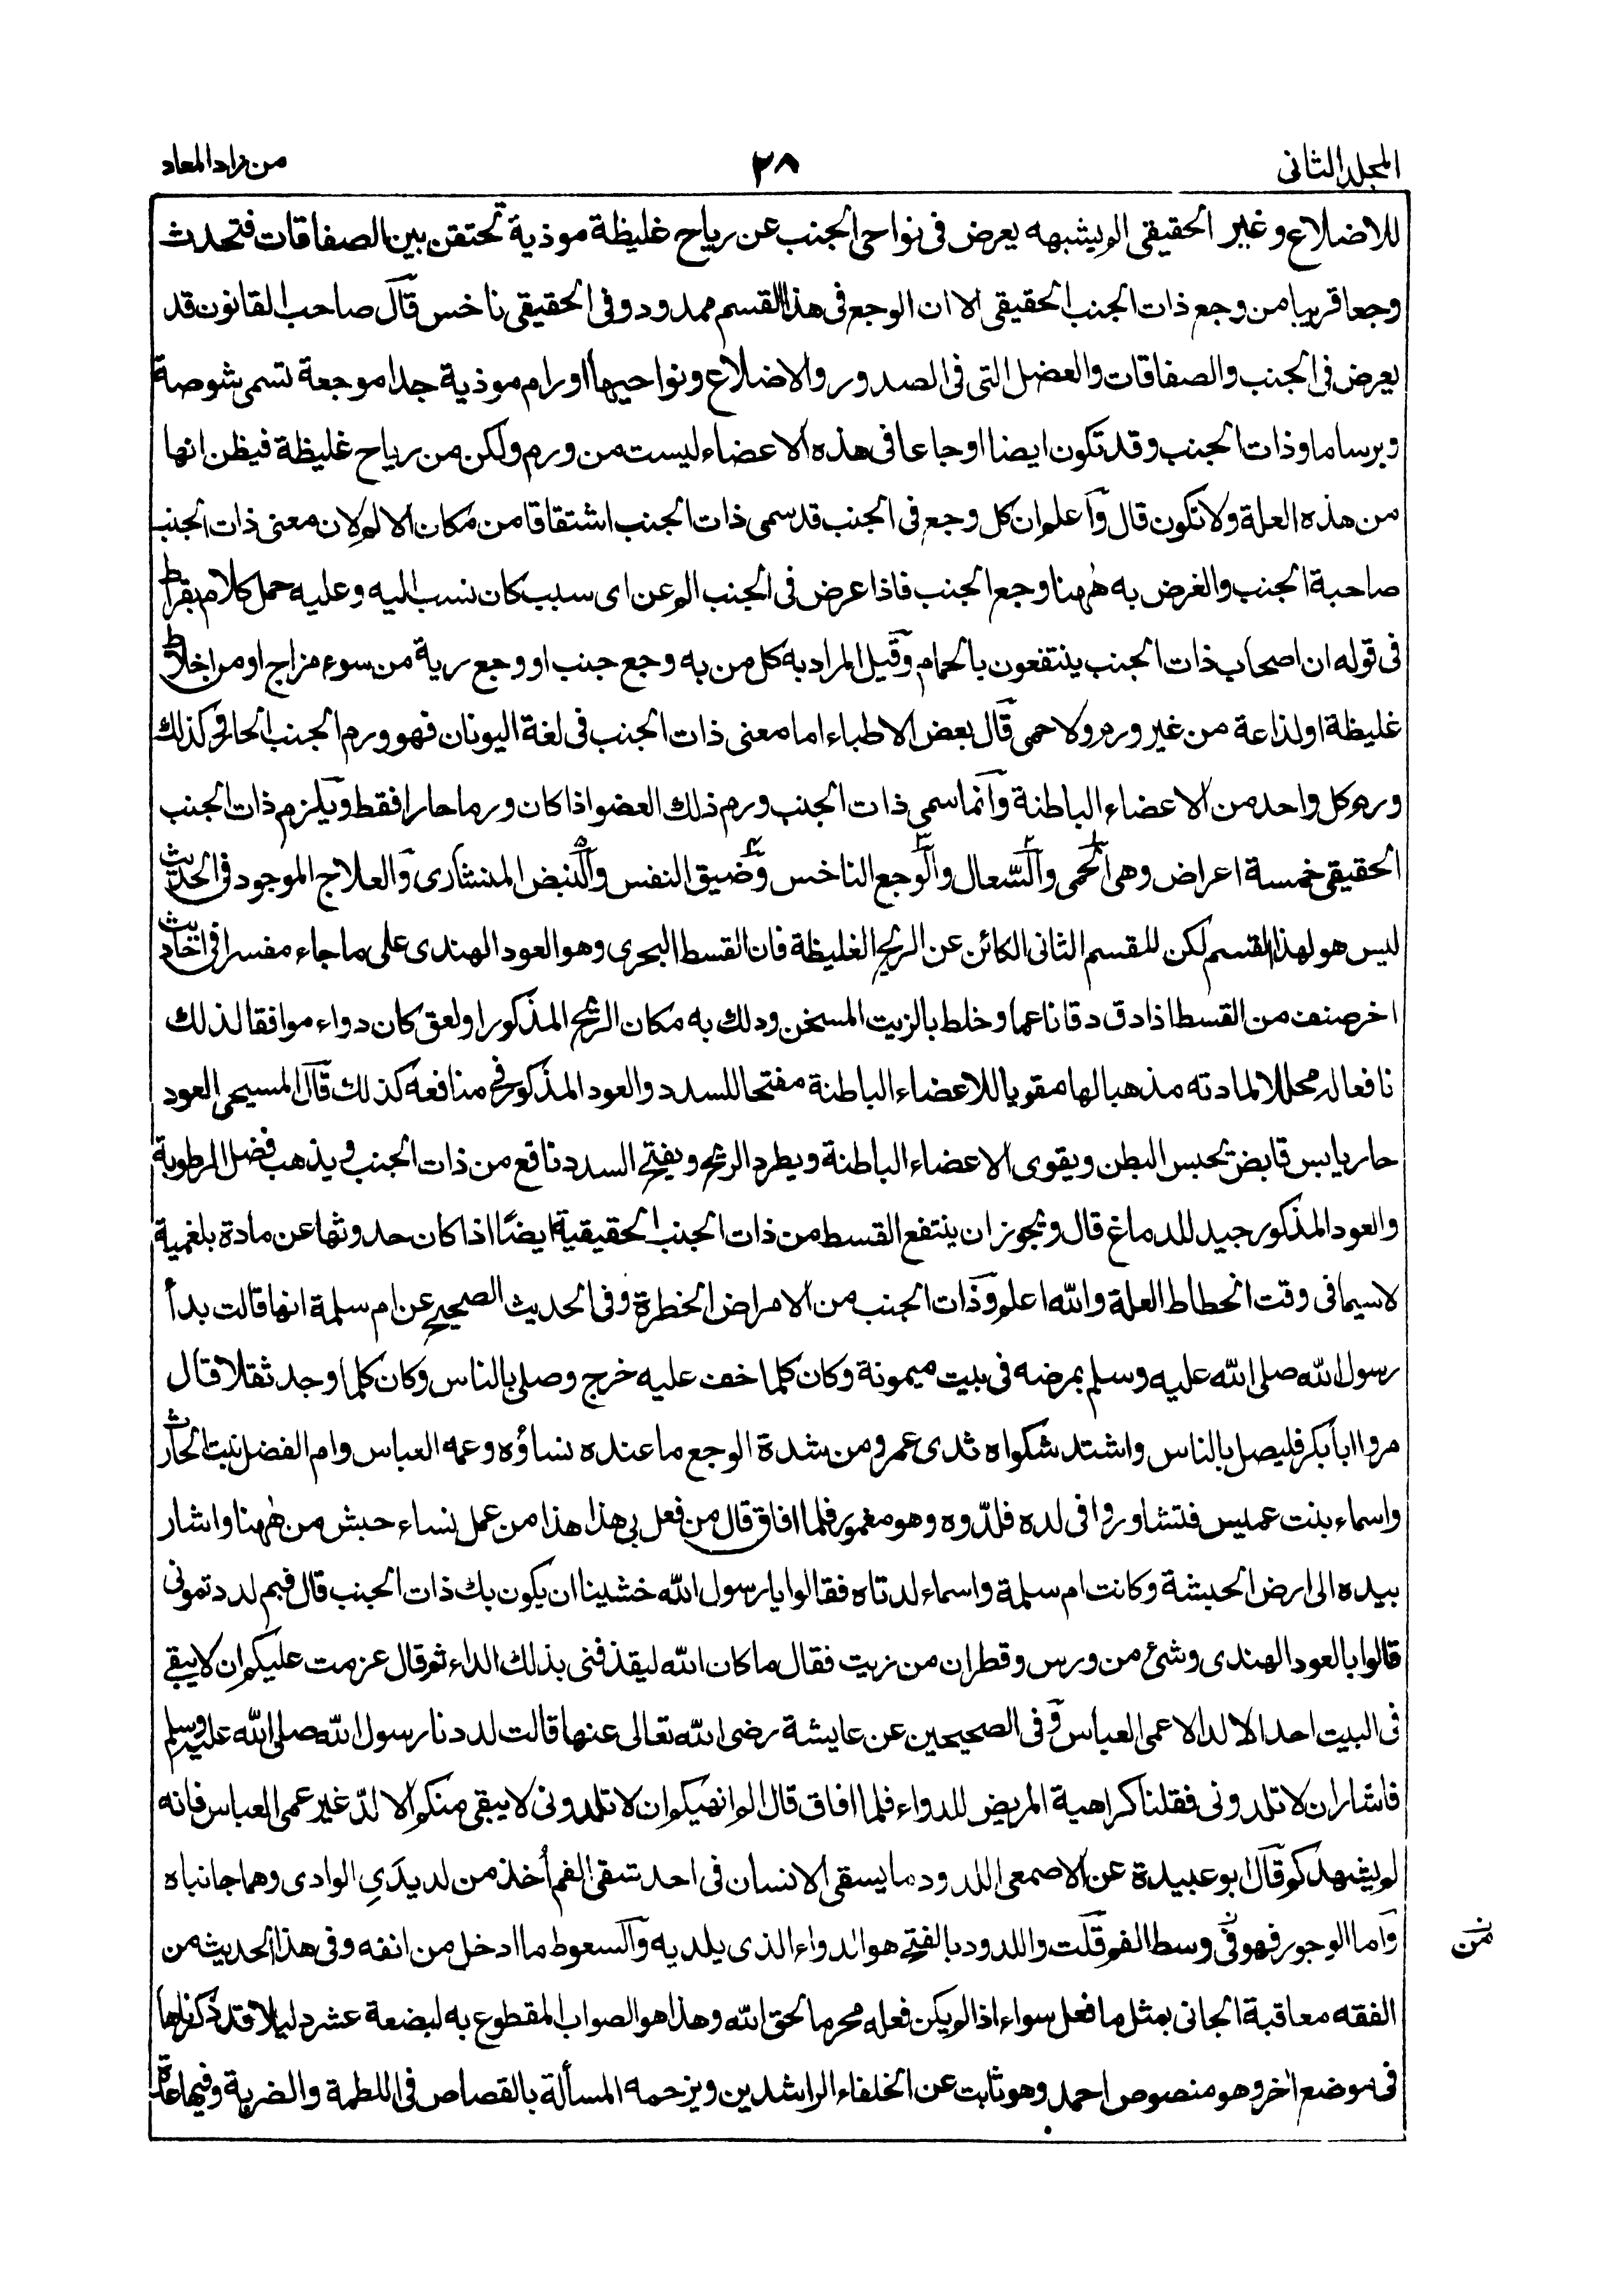 المجلد الثانى
٢٨
من زاد المعاد
للاضلاع وغير الحقيقى الم يشبهه يعرض فى نواحى الجنب عن رياح غليظة موذية تحتقن بين الصفاقات فتحدث
وجعا قريبا من وجع ذات الجنب الحقيقى الا ان الوجع فى هذا القسم ممدود وفى الحقيقى ناخس قال صاحب القانون قد
يعرض فى الجنب والصفاقات والعضل التى فى الصدور والاضلاع ونواحيها اورام موذية جدا موجعة تسمى شوصة
وبرساما وذات الجنب وقد تكون ايضا اوجاعا فى هذه الاعضاء ليست من ورم ولكن من رياح غليظة فيظن انها
من هذه العلة ولا تكون قال واعلم ان كل وجع فى الجنب قد سمى ذات الجنب اشتقاقا من مكان الالم لان معنى ذات الجنب
صاحبة الجنب والغرض به ههنا وجع الجنب فاذا عرض فى الجنب الم عن اى سبب كان نسب اليه وعليه حمل كلام بقراط
فى قوله ان اصحاب ذات الجنب ينتفعون بالحمام وقيل المراد به كل من به وجع جنب او وجع رية من سوء مزاج او من اخلاط
غليظة او لذاعة من غير ورم ولا حمى قال بعض الاطباء اما معنى ذات الجنب فى لغة اليونان فهو ورم الجنب الحار وكذلك
ورم كل واحد من الاعضاء الباطنة وانما سمى ذات الجنب ورم ذلك العضو اذا كان ورما حارا فقط ويلزم ذات الجنب
الحقيقى خمسة اعراض وهى الحمى والسعال والوجع الناخس وضيق النفس والنبض المنشارى والعلاج الموجود فى الحديث
ليس هو لهذا القسم لكن للقسم الثانى الكائن عن الريح الغليظة فان القسط البحرى وهو العود الهندى على ما جاء مفسرا فى احاديث
اخر صنف من القسط اذا دق دقا ناعما وخلط بالزيت المسخن ودلك به مكان الريح المذكور او لعق كان دواء موافقا لذلك
نافعا له محللا لمادته مذهبا لها مقويا للاعضاء الباطنة مفتحا للسدد والعود المذكور فى منافعه كذلك قال المسيحى العود
حار يابس قابض يحبس البطن ويقوى الاعضاء الباطنة ويطرد الريح ويفتح السدد نافع من ذات الجنب ويذهب فضل الرطوبة
والعود المذكور جيد للدماغ قال ويجوز ان ينتفع القسط من ذات الجنب الحقيقية ايضًا اذا كان حدوثها عن مادة بلغمية
لا سيما فى وقت انحطاط العلة والله اعلم وذات الجنب من الامراض الخطرة وفى الحديث الصحيح عن ام سلمة انها قالت بدأ
رسول الله صلى الله عليه وسلم بمرضه فى بيت ميمونة وكان كلما خف عليه خرج وصلى بالناس وكان كلما وجد ثقلا قال
مروا ابا بكر فليصل بالناس واشتد شكواه ثدى عمر ومن شدة الوجع ما عنده نساؤه وعمه العباس وام الفضل بنت الحارث
واسماء بنت عميس فتشاوروا فى لده فلدّوه وهو مغمور فلما افاق قال من فعل بى هذا هذا من عمل نساء حبش من ههنا واشار
بيده الى ارض الحبشة وكانت ام سلمة واسماء لدتاه فقالوا يا رسول الله خشينا ان يكون بك ذات الجنب قال فبم لددتمونى
قالوا بالعود الهندى وشئ من ورس وقطران من زيت فقال ما كان الله ليقذفنى بذلك الداء ثم قال عزمت عليكم ان لا يبقى
فى البيت احد الا لد الا عمى العباس وفى الصحيحين عن عايشة رضى الله تعالى عنها قالت لددنا رسول الله صلى الله عليه وسلم
فاشار ان لا تلدونى فقلنا كراهية المريض للدواء فلما افاق قال الم انهيكم ان لا تلدونى لا يبقى منكم الا لدّ غير عمى العباس فانه
لم يشهدكم قال ابو عبيدة عن الاصمعى اللدود ما يسقى الانسان فى احد شقى الفم أخذ من لديدَىِ الوادى وهما جانباه
واما الوجور فهو فى وسط الفم قلت واللدود بالفتح هو الدواء الذى يلد به والسعوط ما ادخل من انفه وفى هذا الحديث من
من
الفقه معاقبة الجانى بمثل ما فعل سواء اذا لم يكن فعله محرما لحق الله وهذا هو الصواب المقطوع به لبضعة عشر دليلا قد ذكرناها
فى موضع اخر وهو منصوص احمد وهو ثابت عن الخلفاء الراشدين ويزحمه المسألة بالقصاص فى اللطمة والضربة وفيها عدة